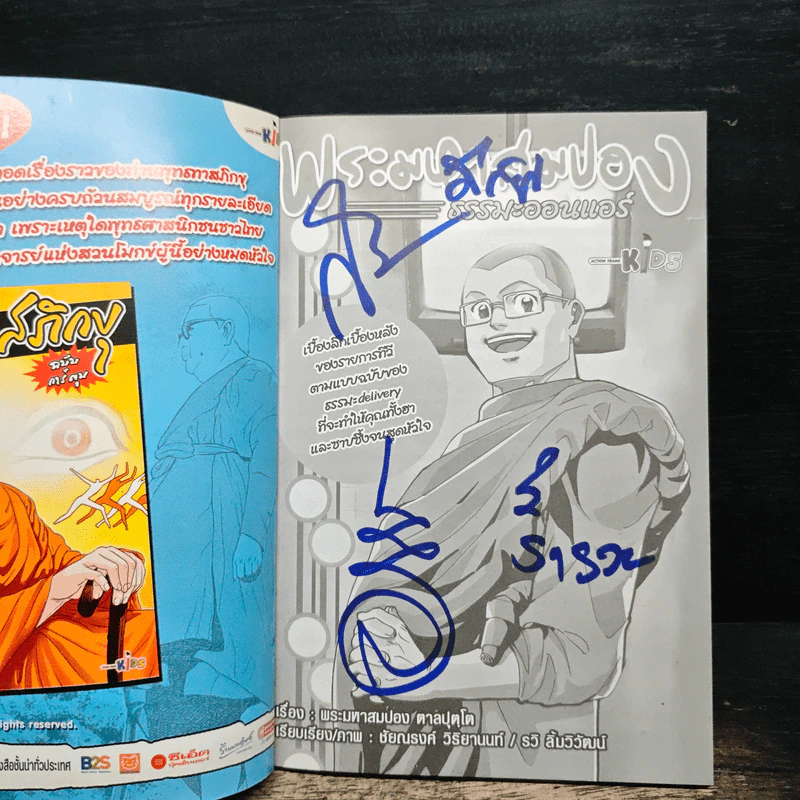 KiDS
อดเรื่องราวของท่านพุทธทาสภิกขุ
อย่างครบถ้วนสมบูรณ์ทุกรายละเอียด
เพราะเหตุใดพุทธศาสนิกชนชาวไทย
จารย์แห่งสวนโมกข์ผู้นี้อย่างหมดหัวใจ
สภิกขุ
ฉบับ
การ์ตูน
KiDS
ights reserved.
งสือชั้นนำทั่วประเทศ
B2S
ซีเอ็ด
พระมหาสมปอง
ธรรมะออนแอร์
ACTION FRAME KiDS
เบื้องลึกเบื้องหลัง
ของรายการทีวี
ตามแบบฉบับของ
ธรรมะdelivery
ที่จะทำให้คุณทั้งฮา
และซาบซึ้งจนสุดหัวใจ
เรื่อง : พระมหาสมปอง ตาลปุตฺโต
เรียบเรียง/ภาพ : ชัยณรงค์ วิริยานนท์ / รวิ ลิ้มวิวัฒน์